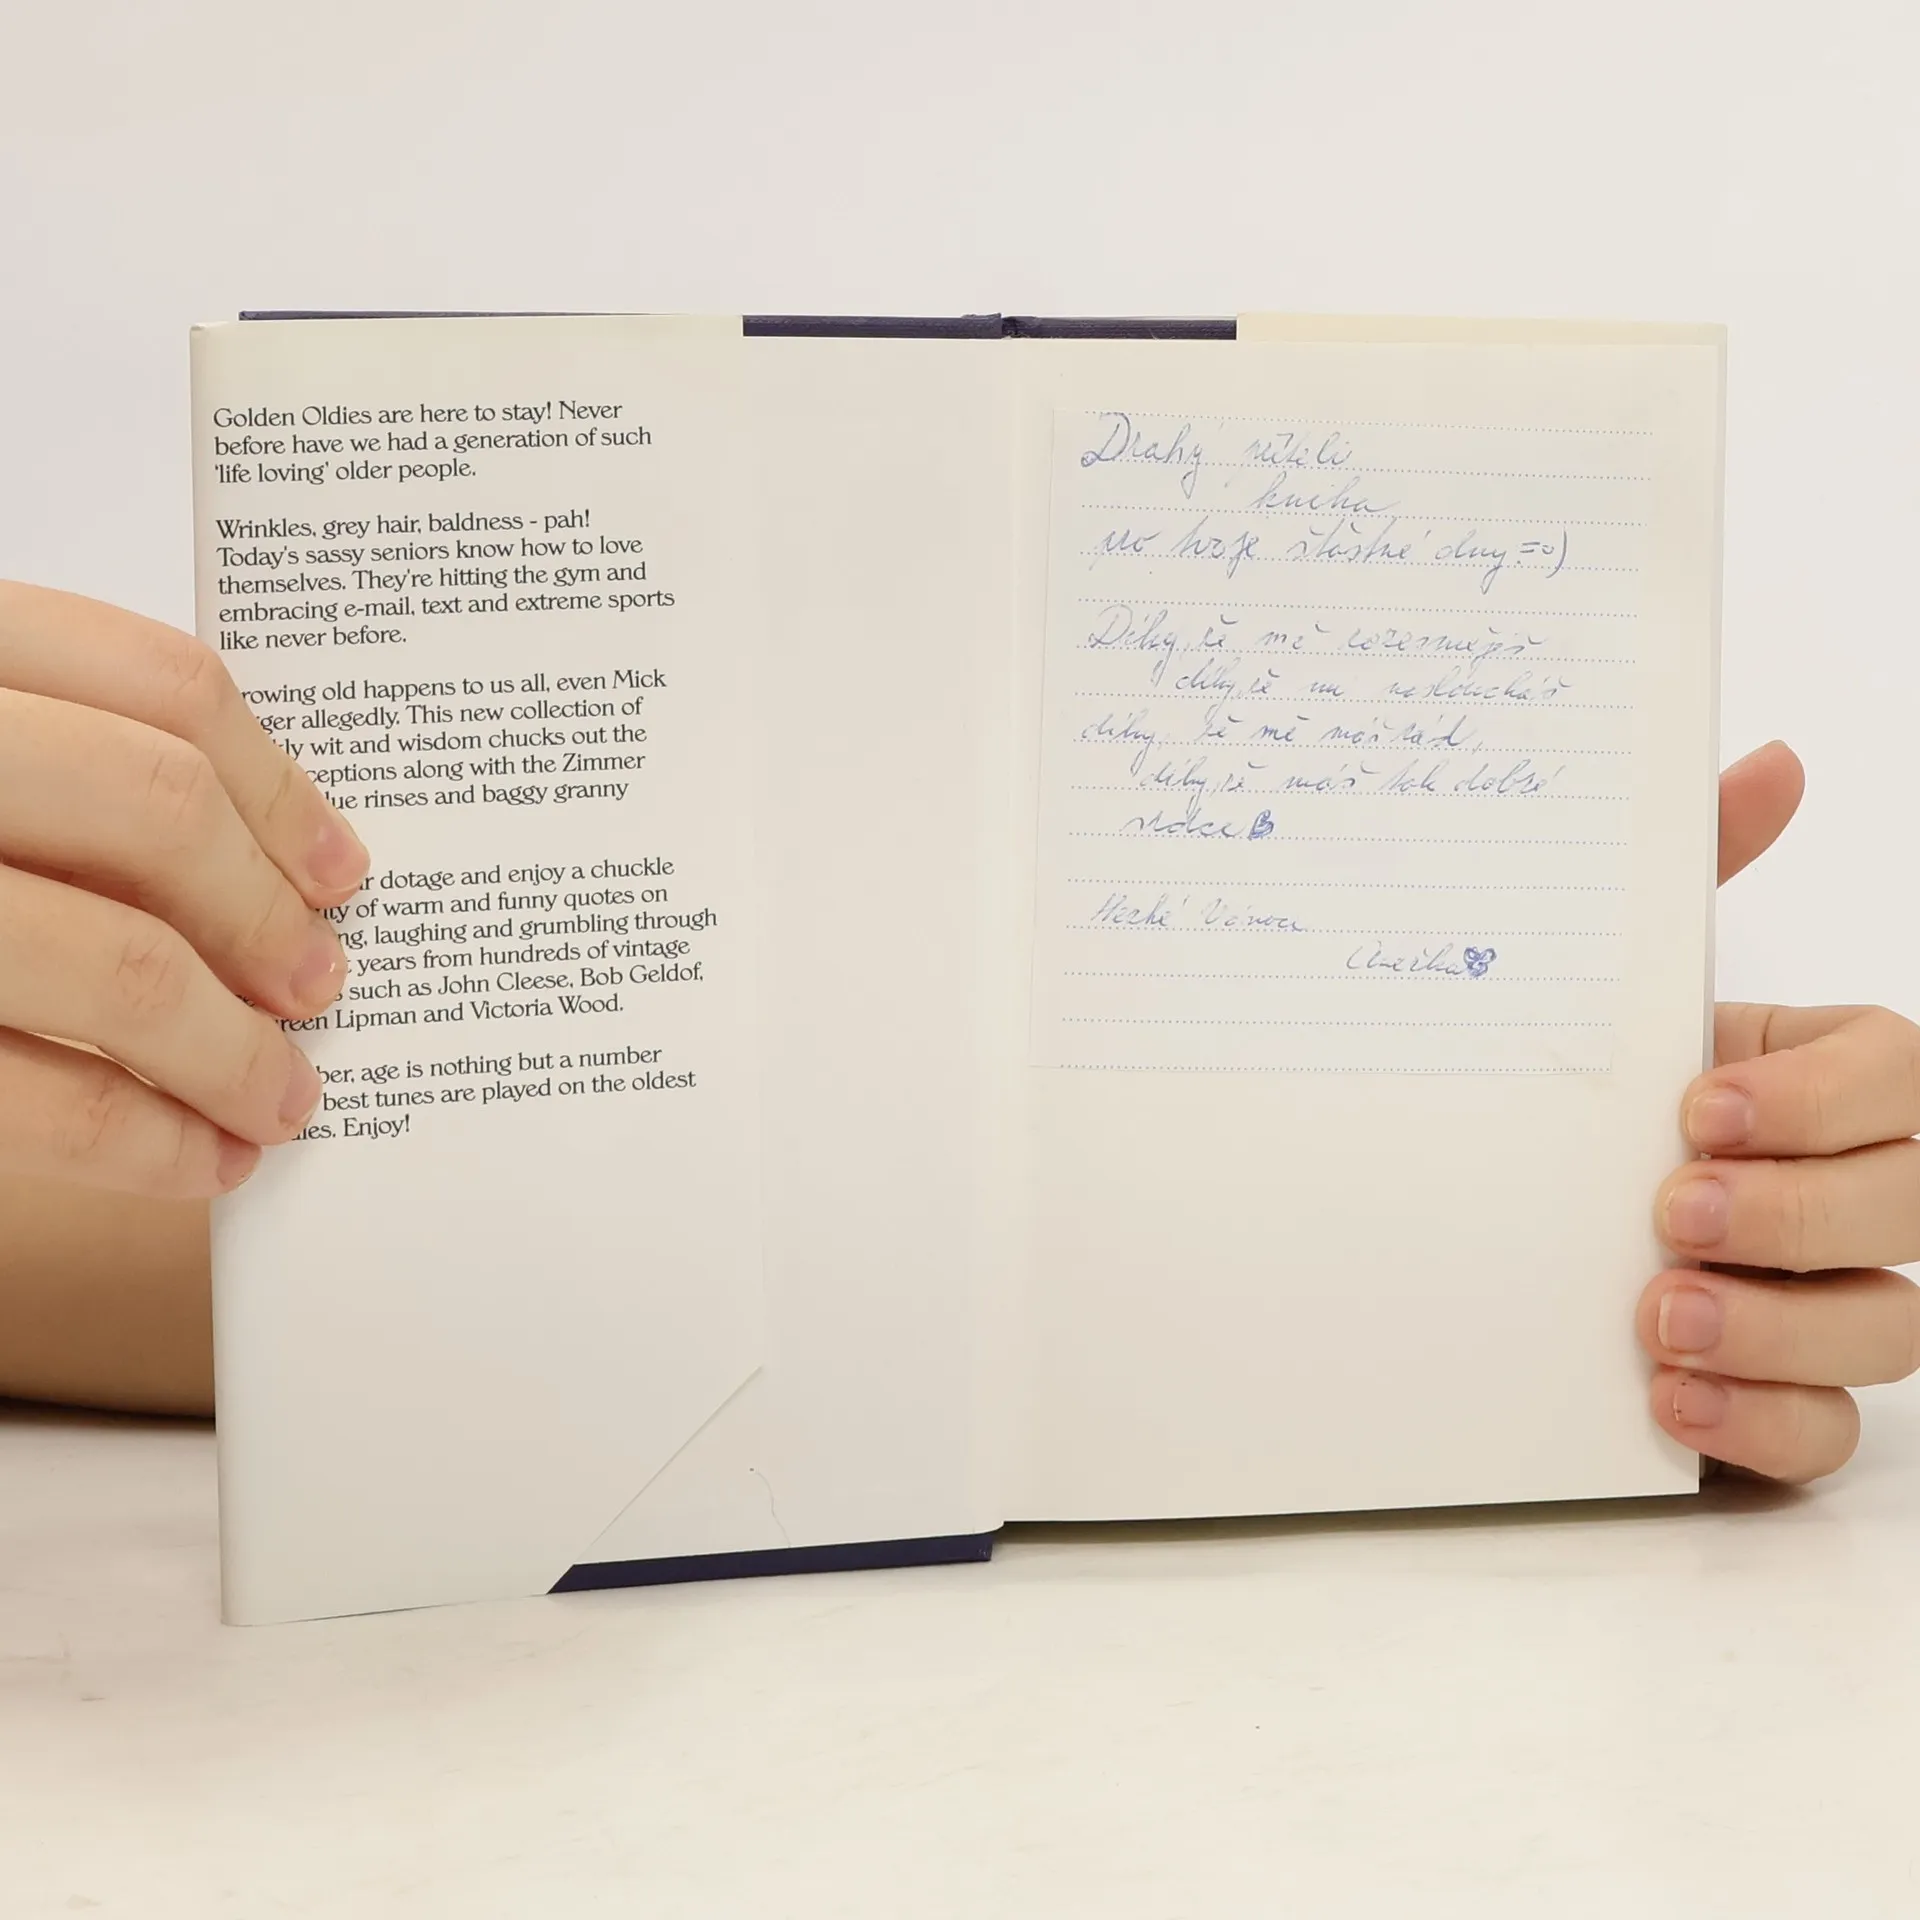 Golden Oldies are here to stay! Never
before have we had a generation of such
'life loving' older people.
Wrinkles, grey hair, baldness - pah!
Today's sassy seniors know how to love
themselves. They're hitting the gym and
embracing e-mail, text and extreme sports
like never before.
rowing old happens to us all, even Mick
ger allegedly. This new collection of
kly wit and wisdom chucks out the
ceptions along with the Zimmer
lue rinses and baggy granny
r dotage and enjoy a chuckle
ity of warm and funny quotes on
ng, laughing and grumbling through
t years from hundreds of vintage
s such as John Cleese, Bob Geldof,
reen Lipman and Victoria Wood.
ber, age is nothing but a number
best tunes are played on the oldest
les. Enjoy!
Drahý příteli
kniha
pro tvoje šťastné dny =o)
Díky, že mě rozesměješ
díky, že mi nasloucháš
díky, že mě máš rád,
díky, že máš tak dobré
srdce
Hezké Vánoce
Anežka